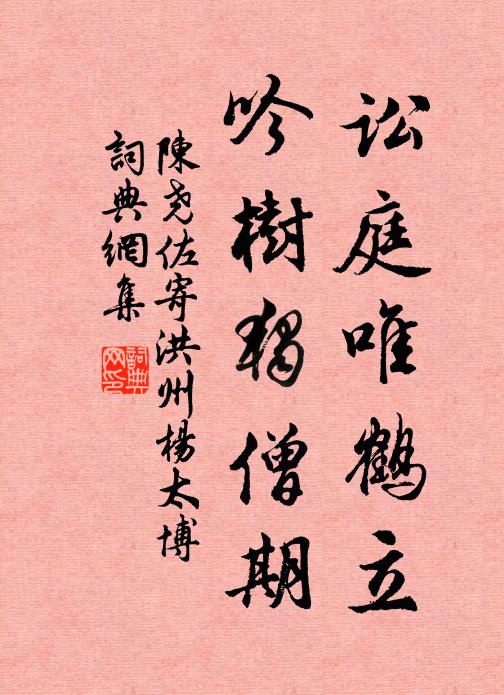 訟庭唯鶴立
吟樹獨僧期
陳堯佐寄洪州楊太博
詞典網集
詞典
网印